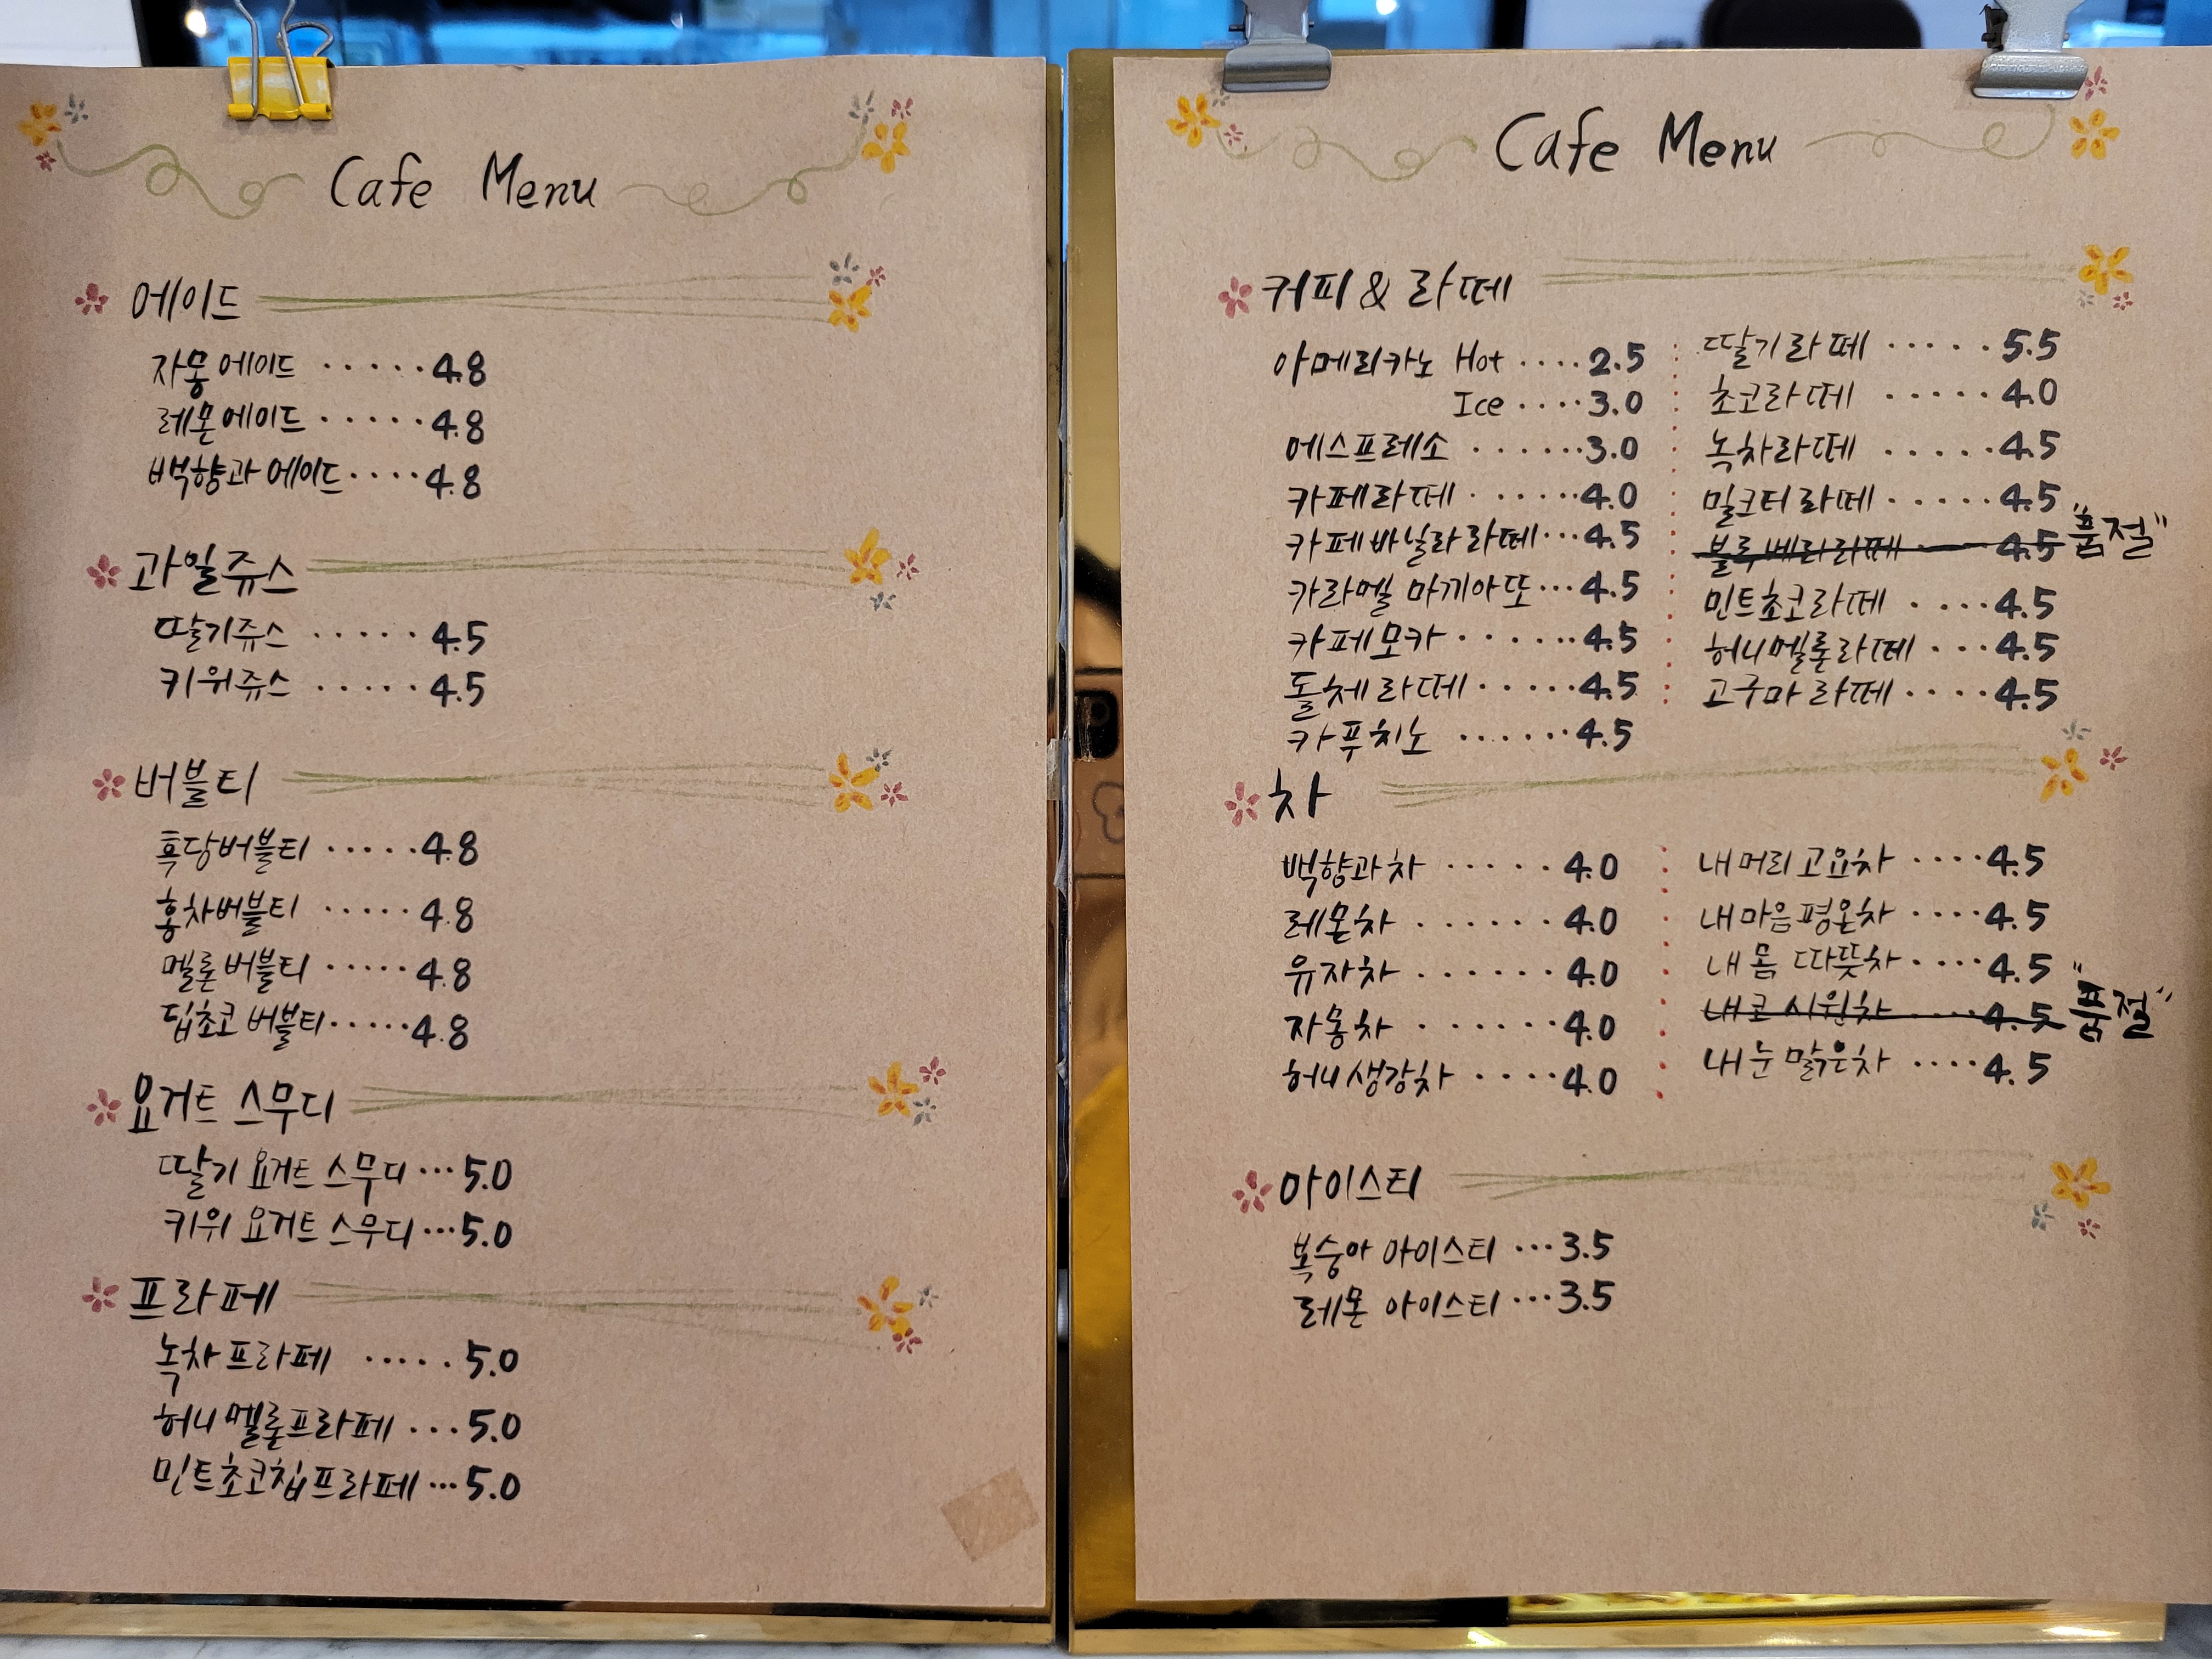 Cafe Menu
에이드
자몽에이드 ..... 4.8
레몬에이드 ..... 4.8
백향과에이드 .... 4.8
과일쥬스
딸기쥬스 ..... 4.5
키위쥬스 ..... 4.5
버블티
흑당버블티 ..... 4.8
홍차버블티 ..... 4.8
멜론버블티 ..... 4.8
딥초코 버블티 ..... 4.8
요거트 스무디
딸기 요거트 스무디 ... 5.0
키위 요거트 스무디 ... 5.0
프라페
녹차프라페 ..... 5.0
허니멜론프라페 ... 5.0
민트초코칩프라페 ... 5.0
Cafe Menu
커피 & 라떼
아메리카노 Hot .... 2.5
Ice .... 3.0
에스프레소 ...... 3.0
카페라떼 ...... 4.0
카페바닐라라떼 ... 4.5
카라멜 마끼아또 ... 4.5
카페모카 ...... 4.5
돌체라떼 ..... 4.5
카푸치노 ...... 4.5
딸기라떼 ..... 5.5
초코라떼 ..... 4.0
녹차라떼 ..... 4.5
밀크티라떼 ..... 4.5
블루베리라떼 4.5 "품절"
민트초코라떼 .... 4.5
허니멜론라떼 ... 4.5
고구마라떼 .... 4.5
차
백향과차 ..... 4.0
레몬차 ...... 4.0
유자차 ...... 4.0
자몽차 ...... 4.0
허니생강차 .... 4.0
내머리고요차 .... 4.5
내마음평온차 .... 4.5
내몸 따뜻차 .... 4.5
내코 시원차 .... 4.5 "품절"
내눈맑은차 .... 4.5
아이스티
복숭아 아이스티 ... 3.5
레몬 아이스티 ... 3.5